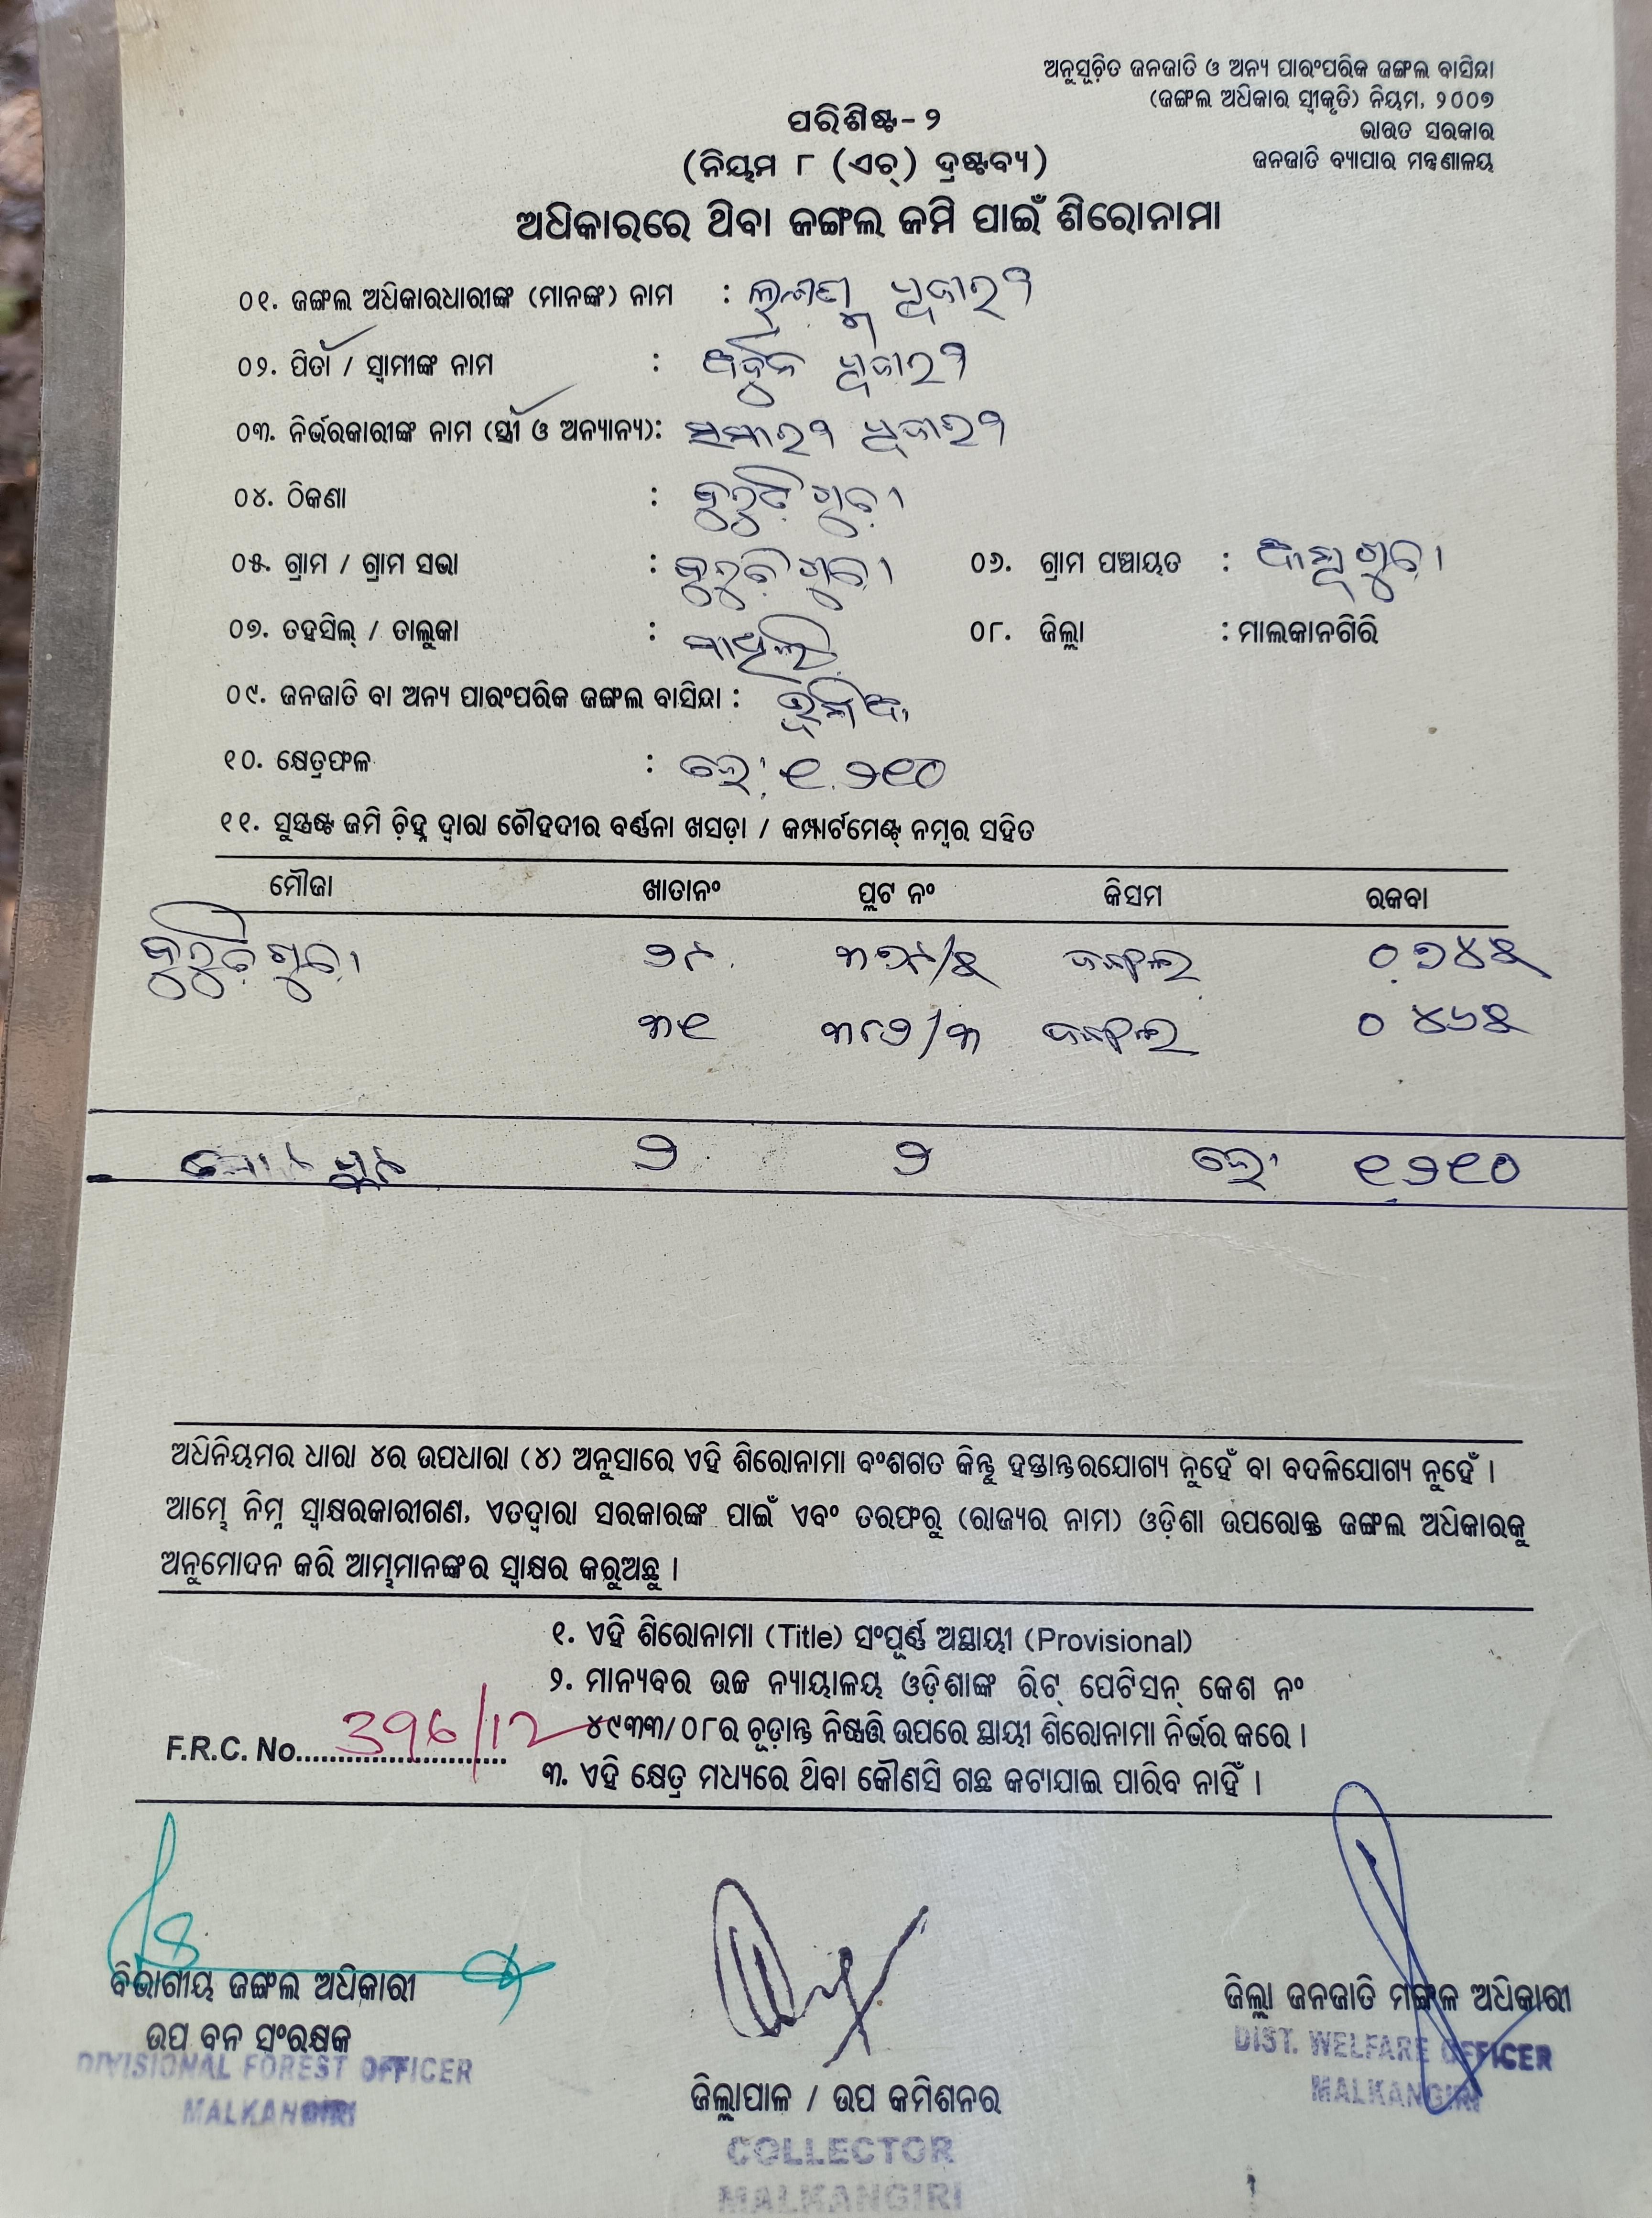 ଅନୁସୂଚିତ ଜନଜାତି ଓ ଅନ୍ୟ ପାରଂପରିକ ଜଙ୍ଗଲ ବାସିନ୍ଦା
(ଜଙ୍ଗଲ ଅଧିକାର ସ୍ୱୀକୃତି) ନିୟମ, ୨୦୦୭
ଭାରତ ସରକାର
ଜନଜାତି ବ୍ୟାପାର ମନ୍ତ୍ରଣାଳୟ
ପରିଶିଷ୍ଟ-୨
(ନିୟମ ୮ (ଏଚ୍) ଦ୍ରଷ୍ଟବ୍ୟ)
ଅଧିକାରରେ ଥିବା ଜଙ୍ଗଲ ଜମି ପାଇଁ ଶିରୋନାମା
୦୧. ଜଙ୍ଗଲ ଅଧିକାରଧାରୀଙ୍କ (ମାନଙ୍କ) ନାମ :
୦୨. ପିତା / ସ୍ୱାମୀଙ୍କ ନାମ : ଅର୍ଜୁନ
୦୩. ନିର୍ଭରକାରୀଙ୍କ ନାମ (ସ୍ତ୍ରୀ ଓ ଅନ୍ୟାନ୍ୟ):
୦୪. ଠିକଣା :
୦୫. ଗ୍ରାମ / ଗ୍ରାମ ସଭା : ୦୬. ଗ୍ରାମ ପଞ୍ଚାୟତ :
୦୭. ତହସିଲ୍ / ତାଲୁକା : ୦୮. ଜିଲ୍ଲା : ମାଲକାନଗିରି
୦୯. ଜନଜାତି ବା ଅନ୍ୟ ପାରଂପରିକ ଜଙ୍ଗଲ ବାସିନ୍ଦା :
୧୦. କ୍ଷେତ୍ରଫଳ : ୧.୨୧୦
୧୧. ସୁସ୍ପଷ୍ଟ ଜମି ଚିହ୍ନ ଦ୍ୱାରା ଚୌହଦୀର ବର୍ଣ୍ଣନା ଖସଡ଼ା / କମ୍ପାର୍ଟମେଣ୍ଟ୍ ନମ୍ବର ସହିତ
ମୌଜା ଖାତାନଂ ପ୍ଲଟ ନଂ କିସମ ରକବା
ଜଙ୍ଗଲ ୦.୭୪୫
୩୧ ୩୮୨/୩ ଜଙ୍ଗଲ ୦.୪୬୫
୨ ୨ ୧.୨୧୦
ଅଧିନିୟମର ଧାରା ୪ର ଉପଧାରା (୪) ଅନୁସାରେ ଏହି ଶିରୋନାମା ବଂଶଗତ କିନ୍ତୁ ହସ୍ତାନ୍ତରଯୋଗ୍ୟ ନୁହେଁ ବା ବଦଳିଯୋଗ୍ୟ ନୁହେଁ ।
ଆମ୍ଭେ ନିମ୍ନ ସ୍ୱାକ୍ଷରକାରୀଗଣ, ଏତଦ୍ୱାରା ସରକାରଙ୍କ ପାଇଁ ଏବଂ ତରଫରୁ (ରାଜ୍ୟର ନାମ) ଓଡ଼ିଶା ଉପରୋକ୍ତ ଜଙ୍ଗଲ ଅଧିକାରକୁ
ଅନୁମୋଦନ କରି ଆମ୍ଭମାନଙ୍କର ସ୍ୱାକ୍ଷର କରୁଅଛୁ ।
୧. ଏହି ଶିରୋନାମା (Title) ସଂପୂର୍ଣ୍ଣ ଅସ୍ଥାୟୀ (Provisional)
୨. ମାନ୍ୟବର ଉଚ୍ଚ ନ୍ୟାୟାଳୟ ଓଡ଼ିଶାଙ୍କ ରିଟ୍ ପେଟିସନ୍ କେଶ ନଂ
୪୯୩୩/୦୮ର ଚୂଡ଼ାନ୍ତ ନିଷ୍ପତ୍ତି ଉପରେ ସ୍ଥାୟୀ ଶିରୋନାମା ନିର୍ଭର କରେ ।
F.R.C. No. 396/12
୩. ଏହି କ୍ଷେତ୍ର ମଧ୍ୟରେ ଥିବା କୌଣସି ଗଛ କଟାଯାଇ ପାରିବ ନାହିଁ ।
ବିଭାଗୀୟ ଜଙ୍ଗଲ ଅଧିକାରୀ
ଉପ ବନ ସଂରକ୍ଷକ
DIVISIONAL FOREST OFFICER
MALKANGIRI
ଜିଲ୍ଲାପାଳ / ଉପ କମିଶନର
COLLECTOR
MALKANGIRI
ଜିଲ୍ଲା ଜନଜାତି ମଙ୍ଗଳ ଅଧିକାରୀ
DIST. WELFARE OFFICER
MALKANGIRI